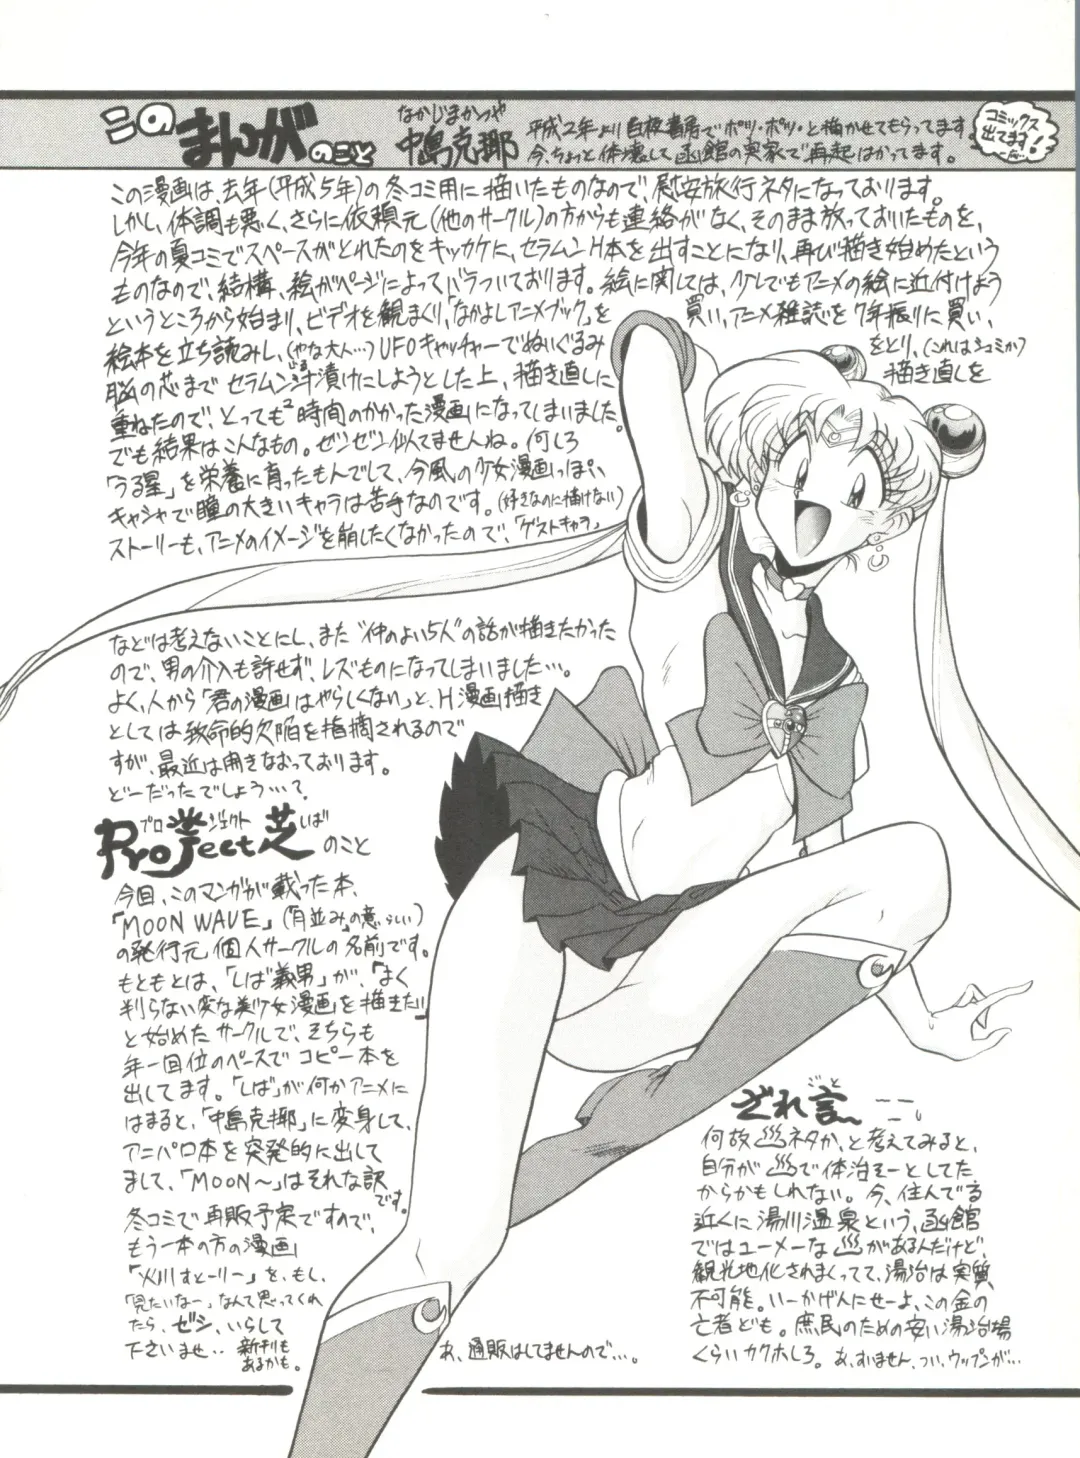 このまんがのこと
なかじまかつや
中島克耶
平成2年より白夜書房でポツ・ポツ・と描かせてもらってます。
今、ちょっと体壊して函館の実家で再起はかってます。
コミックス
出てます!
この漫画は、去年(平成5年)の冬コミ用に描いたものなので、慰安旅行ネタになっております。
しかし、体調も悪く、さらに依頼元(他のサークル)の方からも連絡がなく、そのまま放っておいたものを、
今年の夏コミでスペースがとれたのをキッカケに、セラムンH本を出すことになり、再び描き始めたという
ものなので、結構、絵がページによってバラついております。絵に関しては、少しでもアニメの絵に近付けよう
というところから始まり、ビデオを観まくり、「なかよしアニメブック」を買い、アニメ雑誌を7年振りに買い、
絵本を立ち読みし、(やな大人…)UFOキャッチャーでぬいぐるみをとり、(これはシュミか)
脳の芯までセラムン汁漬けにしようとした上、描き直しに描き直しを
重ねたので、とっても²時間のかかった漫画になってしまいました。
でも結果はこんなもの。ゼンゼン似てませんね。何しろ
「うる星」を栄養に育ったもんでして、今風の少女漫画っぽい
キャシャで瞳の大きいキャラは苦手なのです。(好きなのに描けない)
ストーリーも、アニメのイメージを崩したくなかったので、「ゲストキャラ」
などは考えないことにし、また“仲のよい5人”の話が描きたかった
ので、男の介入も許せず、レズものになってしまいました…。
よく、人から「君の漫画はやらしくない」と、H漫画描き
としては致命的欠陥を指摘されるので
すが、最近は開きなおっております。
どーだったでしょう…?
プロジェクトしば
Project芝のこと
今回、このマンガが載った本、
「MOON WAVE」(「月並み」の意らしい)
の発行元、個人サークルの名前です。
もともとは、「しば義男」が、「まく
判らない変な美少女漫画を描きたい」
と始めたサークルで、そちらも
年一回位のペースでコピー本を
出してます。「しば」が何かアニメに
はまると、「中島克耶」に変身して、
アニパロ本を突発的に出して
まして、「MOON〜」はそれな訳
です。
冬コミで再販予定ですので、
もう一本の方の漫画
「火川すとーりー」を、もし、
「見たいなー」なんて思ってくれ
たら、ゼシ、いらして
下さいませ‥
新刊も
あるかも。
あ、通販はしてませんので…。
ざれ言
ごと
何故♨ネタか、と考えてみると、
自分が♨で体治そーとしてた
からかもしれない。今、住んでる
近くに湯川温泉という、函館
ではユーメーな♨があるんだけど、
観光地化されまくってて、湯治は実質
不可能。いーかげんにせーよ、この金の
亡者ども。庶民のための安い湯治場
くらいカクホしろ。あ、すいません、つい、ウップンが…